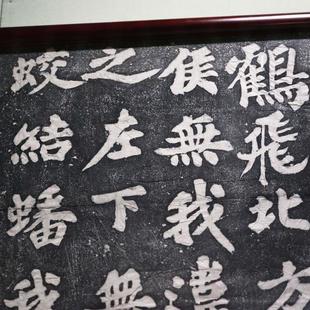 鶴飛北方
侯無我違
之左下無
蛟結蟠我